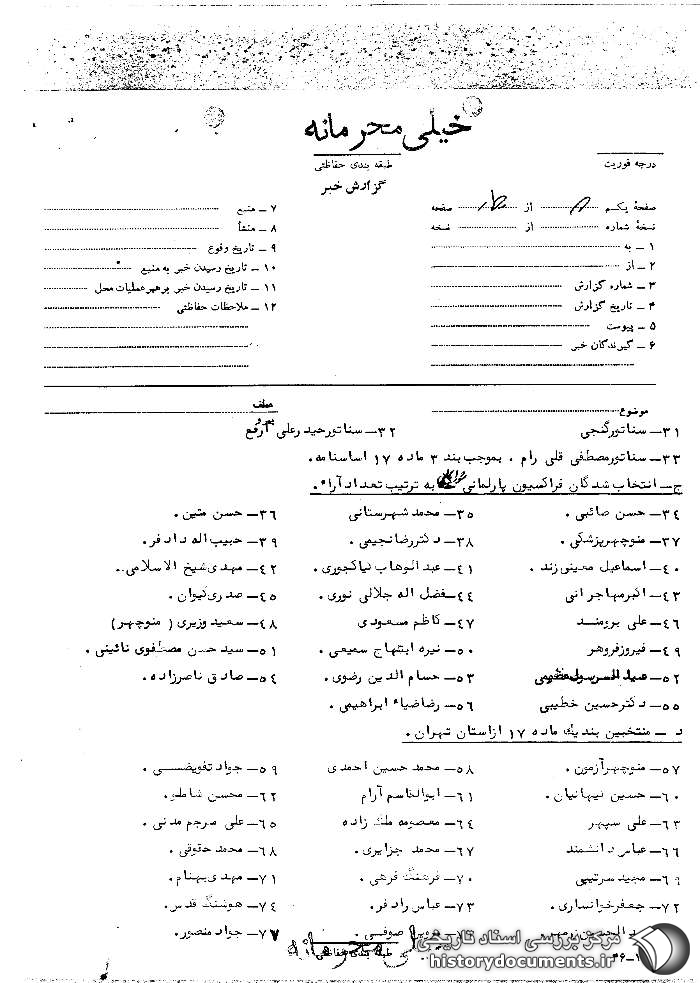 خیلی محرمانه
درجه فوریت
طبقه بندی حفاظتی
گزارش خبر
صفحهٔ یکم از صفحه
نسخهٔ شماره از نسخه
۱ ـ به
۲ ـ از
۳ ـ شماره گزارش
۴ ـ تاریخ گزارش
۵ ـ پیوست
۶ ـ گیرندگان خبر
۷ ـ منبع
۸ ـ منشأ
۹ ـ تاریخ وقوع
۱۰ ـ تاریخ رسیدن خبر به منبع
۱۱ ـ تاریخ رسیدن خبر برهبر عملیات محل
۱۲ ـ ملاحظات حفاظتی
موضوع عطف
۳۱ـ سناتور گنجی ۳۲ـ سناتور حیدرعلی ارفع
۳۳ـ سناتور مصطفی قلی رام . بموجب بند ۳ ماده ۱۷ اساسنامه.
ج ـ انتخاب شدگان فراکسیون پارلمانی به ترتیب تعداد آراء.
۳۴ـ حسن صائبی . ۳۵ـ محمد شهرستانی ۳۶ـ حسن متین .
۳۷ـ منوچهر پزشکی . ۳۸ـ دکتر رضا نجیمی . ۳۹ـ حبیب اله دادفر.
۴۰ـ اسماعیل معینی زند . ۴۱ـ عبدالوهاب نیاکجوری . ۴۲ـ مهدی شیخ الاسلامی .
۴۳ـ اکبر مهاجرانی ۴۴ـ فضل اله جلالی نوری . ۴۵ـ صدری کیوان .
۴۶ـ علی برومند ۴۷ـ کاظم مسعودی ۴۸ـ سعید وزیری ( منوچهر)
۴۹ـ فیروز فروهر ۵۰ـ نیره ابتهاج سمیعی . ۵۱ـ سید حسن مصطفوی نائینی .
۵۲ـ ۵۳ـ حسام الدین رضوی . ۵۴ـ صادق ناصرزاده .
۵۵ـ دکتر حسین خطیبی ۵۶ـ رضا ضیاء ابراهیمی .
د ـ منتخبین بند یک ماده ۱۷ از استان تهران .
۵۷ـ منوچهر آزمون . ۵۸ـ محمد حسین احمدی ۵۹ـ جواد تفویضی .
۶۰ـ حسین کیهانیان . ۶۱ـ ابوالقاسم آرام ۶۲ـ محسن شاطو.
۶۳ـ علی سپهر ۶۴ـ معصومه ملک زاده ۶۵ـ علی مرجم مدنی .
۶۶ـ عباس دانشمند ۶۷ـ محمد جزایری . ۶۸ـ محمد حقوقی .
۶۹ـ مجید سرتیپی ۷۰ـ فرهنگ فرهی . ۷۱ـ مهدی بهنام .
۷۲ـ جعفر خوانساری . ۷۳ـ عباس رادفر. ۷۴ـ هوشنگ قدس .
صوفی . ۷۷ـ جواد منصور.
طبقه بندی حفاظتی
مرکز بررسی اسناد تاریخی
historydocuments.ir